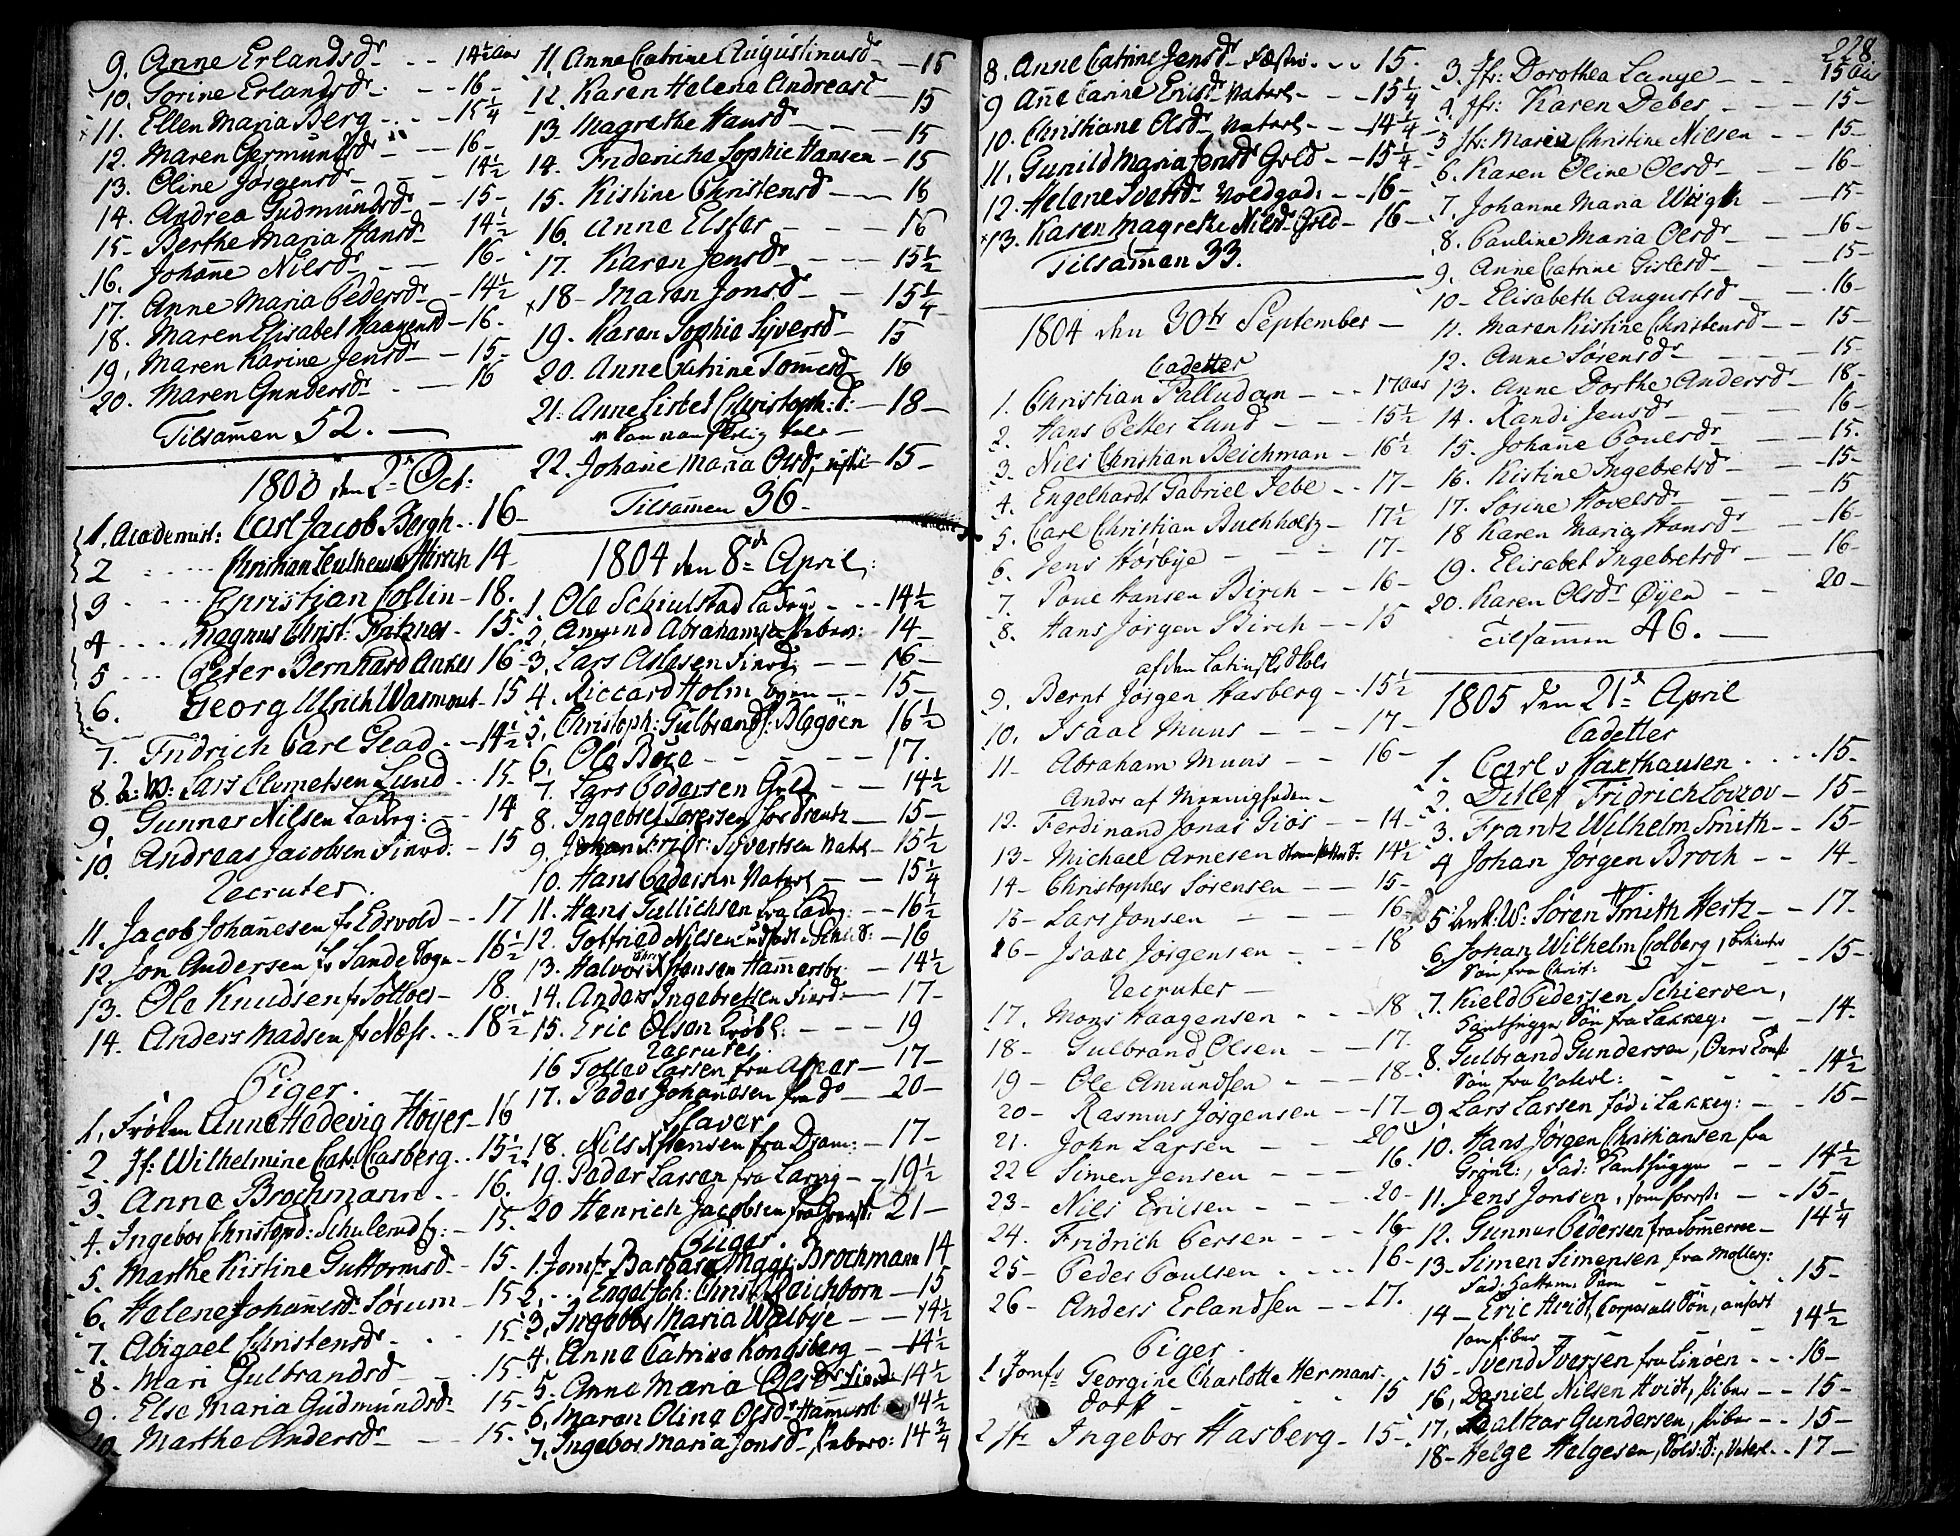 9. Anne Erlandsdr - - 14½ Aar
10. Torine Erlandsdr - - 16 -
11. Ellen Maria Berg - - 15¼
12. Maren Germundsdr - - 16 -
13. Oline Jørgensdr - - 14½
14. Andrea Gudmundsdr - 15 -
15. Berthe Maria Hansd - 14½
16. Johanne Nilsdr - - 16 -
17. Anne Maria Pedersdr - 14½
18. Maren Elisabet Haagensd - 16.
19. Maren Karine Jensdr - 15 -
20. Maren Gundersdr - 16
Tilsamen 52.
1803 den 2den Oct:
1. Academist: Carl Jacob Bergh - 16 -
2 Christian Hirsch 14 -
3 Christian Collin - 18.
4 Magnus Christ: Fritzner - 15.
5 Peter Bernhard Anker 16 -
6. Georg Ulrich Wasmout - 15
7. Fridrich Carl Glad - 14½
8. Lars Clemetsen Lund - 15.
9. Gunner Nilsen - 14
10. Andreas Jacobsen - 15
Recruter.
11. Jacob Johannesen fr Edsvold - 17
12. Jon Andersen fr Sande Sogn - 16½
13. Ole Knudsen fr - 18.
14. Anders Madsen fr Næss - 18½
Piger.
1. Frøken Anne Hedevig Höyer - 16
2. Jf: Wilhelmine Cat: Casberg - 15½
3. Anne Brochmann - 16.
4. Ingebor Christopd: - 15.
5. Marthe Kistine Guttormsd - 15.
6. Helene Johannesdr Sørum - 15
7. Abigael Christensdr - 15
8. Mari Gulbrandsd - 15.
9. Else Maria Gudmundsdr - 15 -
10. Marthe Andersdr - 15.
11. Anne Catrine Augustinusdr - 15
12. Karen Helene Andreasd - 15
13. Magrethe Hansdr - 15
14. Frideriche Sophie Hansen - 15
15. Kistine Christensdr - 16
16. Anne Elster - 16
17. Karen Jensdr - 15½
18 - Maren Jonsdr - 15¼
19. Karen Sophie Syversdr - 15
20. Anne Catrine Tomesdr - 16
21. Anne Lisbet Christoph: d: - 18 -
22. Johanne Maria Olsdr - 15 -
Tilsamen 36 -
1804 den 8de April.
1. Ole Schiulstad - 14½
2. Amund Abrahamsen - 14 -
3. Lars Aslesen - 16 -
4. Riccard Holm - 15 -
5. Christoph: Gulbrands: 16½
6. Ole Boze - 17.
7. Lars Pedersen - 14½
8. Ingebret Torersen - 15 -
9. Johan Fridr: Sivertsen Naterl - 15½
10. Hans Pedersen Naterl - 15¼
11. Hans Gullichsen fra - 16½
12. Gotfried Nilsen - 16
13. Halvor Hansen Hamersb: - 14½
14. Anders Ingebretsen - 17 -
15. Eric Olsen - 19
Recruter.
16 Tollev Larsen fra Asker - 17 -
17. Peder Johannesen fra do - 20 -
Slaver
18. Nils Hensen fra Dram: - 17 -
19. Peder Larsen fra - 19½
20 Henrich Jacobsen fra - 21 -
Piger.
1. Jomfr Barbara Magr: Brochmann 14
2. Engel Joh: Christ: Reichborn - 15
3. Ingebor Maria Walbye - 14½
4. Anne Catrine Kongsberg - 14½
5. Anne Maria Olsdr - 14½
6. Maren Oline Olsdr - 14½
7. Ingebor Maria Jonsdr - 14¾
8. Anne Catrine Jensdr - 15.
9 Anne Carine Ericsdr Naterl - 15¼
10. Christiane Olsdr Naterl - 14¼
11. Gunild Maria Jensdr Grld - 15¼
12. Helene Ivetsdr - 16 -
13. Karen Magrethe Nilsdr Grld - 16 -
Tilsamen 33.
1804 den 30te September -
Cadetter
1. Christian Palludan - 17 Aar
2. Hans Petter Lund - 15½
3. Nils Christian Beichman - 16½
4. Engelhardt Gabriel Jebe - 17 -
5. Carl Christian Buchholtz - 17½
6. Jens Horbye - 17 -
7. Poul Hansen Birch - 16 -
8. Hans Jørgen Birch - 15
af den Latinske Skole
9. Bernt Jørgen Hasberg - 15½
10. Isaac Muus - 17 -
11 - Abraham Muus - 16 -
Andre af Menigheden -
12. Ferdinand Jonas Giör - 14 -
13 - Michael Arnesen - 14½
14 - Christopher Sørensen - 15 -
15 - Lars Jonsen - 16
16 - Isaac Jørgensen - 18
Recruter -
17. Mons Haagensen - 18
18 - Gulbrand Olsen - 17.
19 - Ole Amundsen - 18 -
20 - Rasmus Jørgensen - 17 -
21. John Larsen - 20
22 Simen Jensen - 16.
23 - Nils Ericsen - 20 -
24. Fridrich Persen - 16 -
25 - Peder Poulsen - 16 -
26 - Anders Erlandsen - 17.
Piger.
1 Jomfr Georgine Charlotte Hermans-
dorff - 15
2 Jfr Ingebor Hasberg - 15 -
228.
3. Jfr: Dorothea Lange - 15 Aar
4. Jfr: Karen Debes - 15 -
5 Jfr: Maren Christine Nilsen - 15 -
6. Karen Oline Olsdr - 16 -
7. Johanne Maria Wiigh - 15 -
8. Pauline Maria Olsdr - 16 -
9. Anne Catrine Gislesdr - 15 -
10 - Elisabeth Augustsdr - 16 -
11. Maren Kistine Christensdr - 15 -
12. Anne Sørensdr - 15
13. Anne Dorthe Andersdr - 18 -
14. Randi Jensdr - 16
15. Johanne Poulsdr - 15.
16. Kistine Ingebretsdr - 15 -
17. Sørine Hovelsdr - 15
18 Karen Maria Hansdr - 16 -
19. Elisabet Ingebretsdr - 16 -
20. Karen Olsdr Øyen - 20 -
Tilsamen 46.
1805 den 21de April
Cadetter
1. Carl v Haxthausen - 15 -
2. Ditlef Fridrich Lovzov - 15 -
3. Frantz Wilhelm Smith - 15 -
4 Johan Jørgen Broch - 14 -
5 Søren Smith Hertz - 17 -
6 Johan Wilhelm Colberg,
Søn fra Christ: - 15 -
7. Kield Pedersen Schierven,
Søn fra Lakkeg: - 14 -
8. Gulbrand Gundersen,
Søn fra Vaterl: - 14½
9 Lars Larsen født i Lakkeg: - 15 -
10. Hans Jørgen Christiansen fra
Grønl: - 14½
11. Jens Jonsen, - 15 -
12. Gunner Pedersen - 14¼
13 - Simen Simensen fra Møllerg:
- 15 -
14 - Eric Hvidt, Corporals Søn, anført
- 14½
15 - Svend Iversen fra Linöen - 16 -
16. Daniel Nilsen Hvidt, - 15 -
17. Baltzar Gundersen, - 15 -
18 - Helge Helgesen, Sold: S:, Vaterl. - 17 -